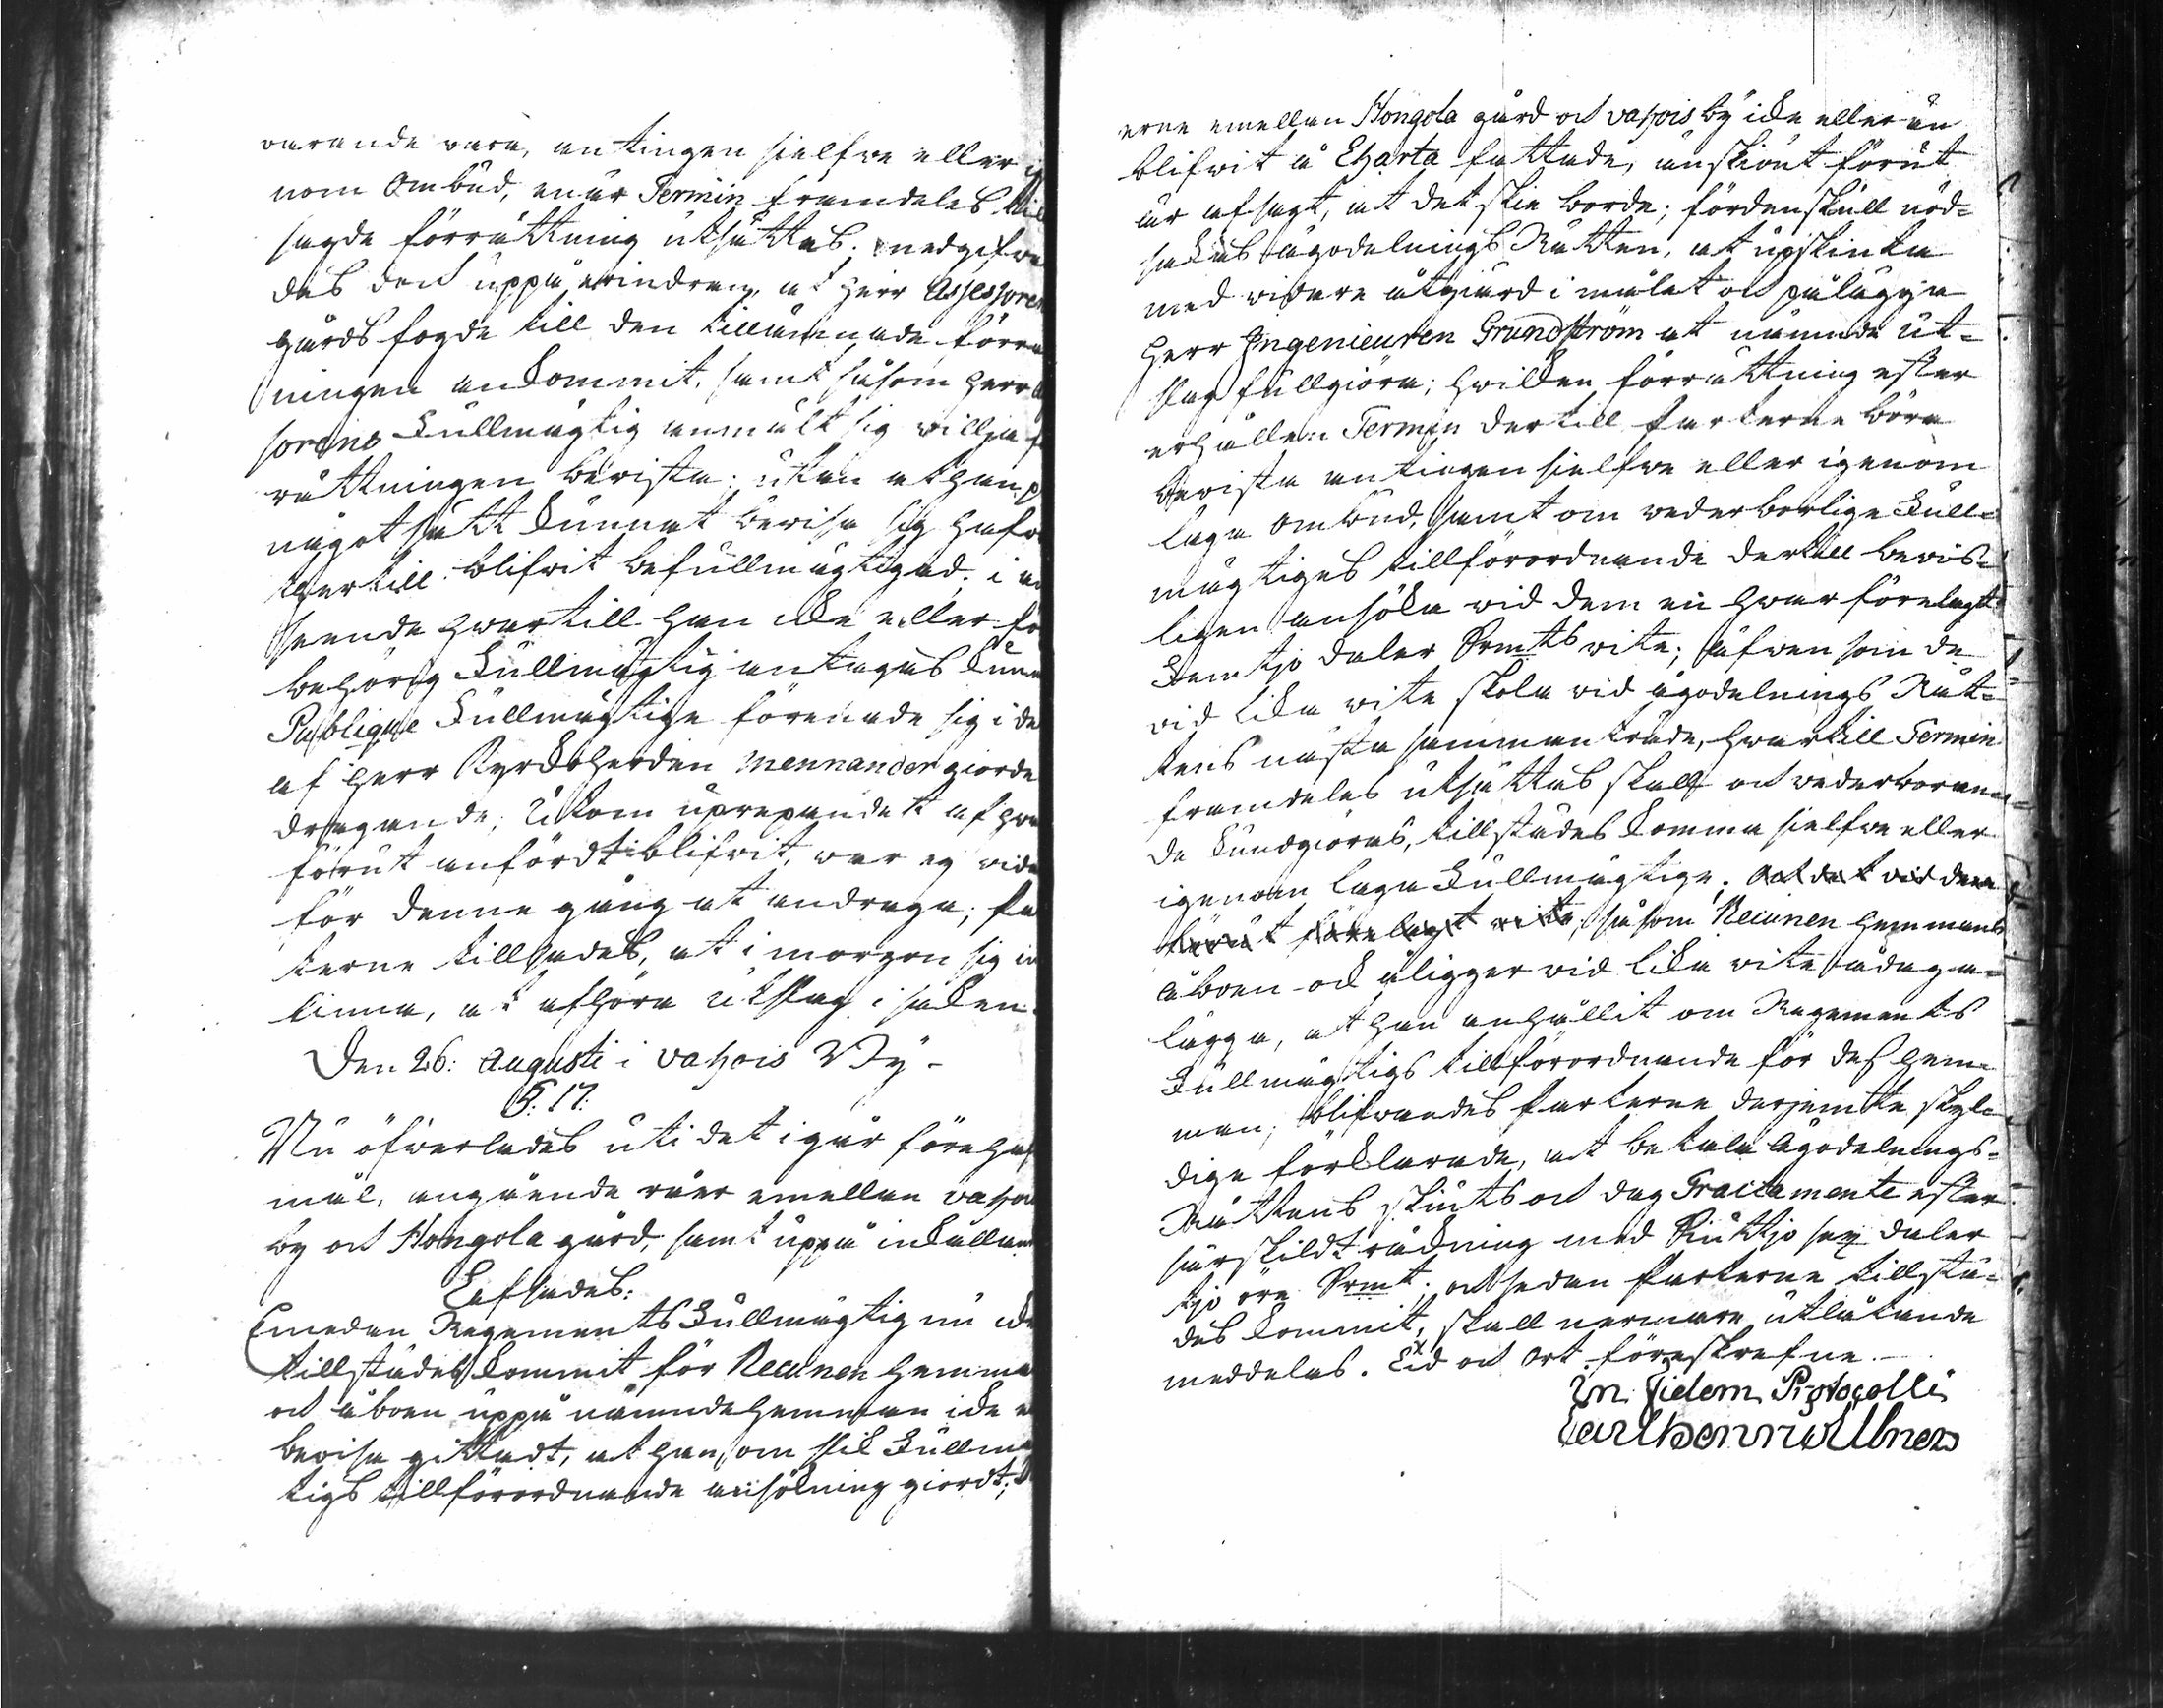 varande vara, antingen sielfwe eller i
nom Ombud, enär Termin framdeles till
sagde förrättning utsättes; medgifwa
des doch uppå erindran, at Herr Assessoren
gårds fogde till den tillämnade förrä
ningen ankommit, samt såsom Herr A
sorens Fullmägtig anmält sig willja f
rättningen bevista; utan at han p
något sätt kunnat bevisa sig hafw
thertill blifvit befullmägtigad. i an
seende hwartill han icke eller för
behörig Fullmägtig antagas kun
Publique Fullmägtige förenade sig i de
af Herr Kyrckoherden Mennander giorde
dragande; Utom uprepandet af hwa
förut anfördt blifvit, war ej vida
för denne gång at andraga; Pa
terne tillsades, at i morgon sig in
finna, at afhöra utslag i saken.
Den 26: Augusti i Vahois By
§. 17.
Nu öfwerlades uti det i går förehaf
mål, angående råer emellan Vahois
by och Hongola gård, samt uppå inkallan
Eafsades:
Emedan Regements Fullmägtig nu icke
tillstädes kommit för Recunen hemma
och åboen uppå nämnde hemman icke e
bevisa gittadt, at han om slik Fullmä
tigs tillförordnande ansökning giordt;
erne emellan Hongola gård och Vahois by icke eller än
blifvit å Charta fattade, änskiönt förut
är afsagt, at det skie borde; fördenskull nöd=
sakas Ägodelnings Rätten, at upskiuta
med vidare åtgiärd i målet och pålägga
Herr Ingenieuren Grundström at nämnde ut=
slag fullgiöra; hwilken förrättning efter
erhållen Termin dertill Parterne böra
bevista antingen sielfwe eller igenom
laga Ombud, samt om wederbörlige Full=
mägtiges tillförordnande dertill bevis=
ligen ansöka vid dem en hwar förelagt
Femtijo daler Srmts vite; äfwen som de
vid lika vite skola vid ägodelnings Rät=
tens nästa sammanträde, hwartill Termin
framdeles utsättas skall och wederböran=
de kundgiöras, tillstädes komma sielfwe eller
igenom laga Fullmägtige; och det vid dem
förut förelagt vite, såsom Recunen hemmans
åboen ock åligger vid lika vite ådaga=
lägga, at han anhållit om Regements
Fullmägtigs tillförordnande för dess hem=
man; blifwandes Parterne derjemte skyl=
dige förklarade, at betala Ägodelnings=
Rättens skiuts och dag Tractamente efter
särskildt räckning med Siuttijo sex daler
tijo öre Srmt; och sedan Parterne tillstä=
des kommit, skall nermare utlåtande
meddelas. Tid och Ort föreskrefne.
In Fidem Protocolli
Carl Henric Ulner